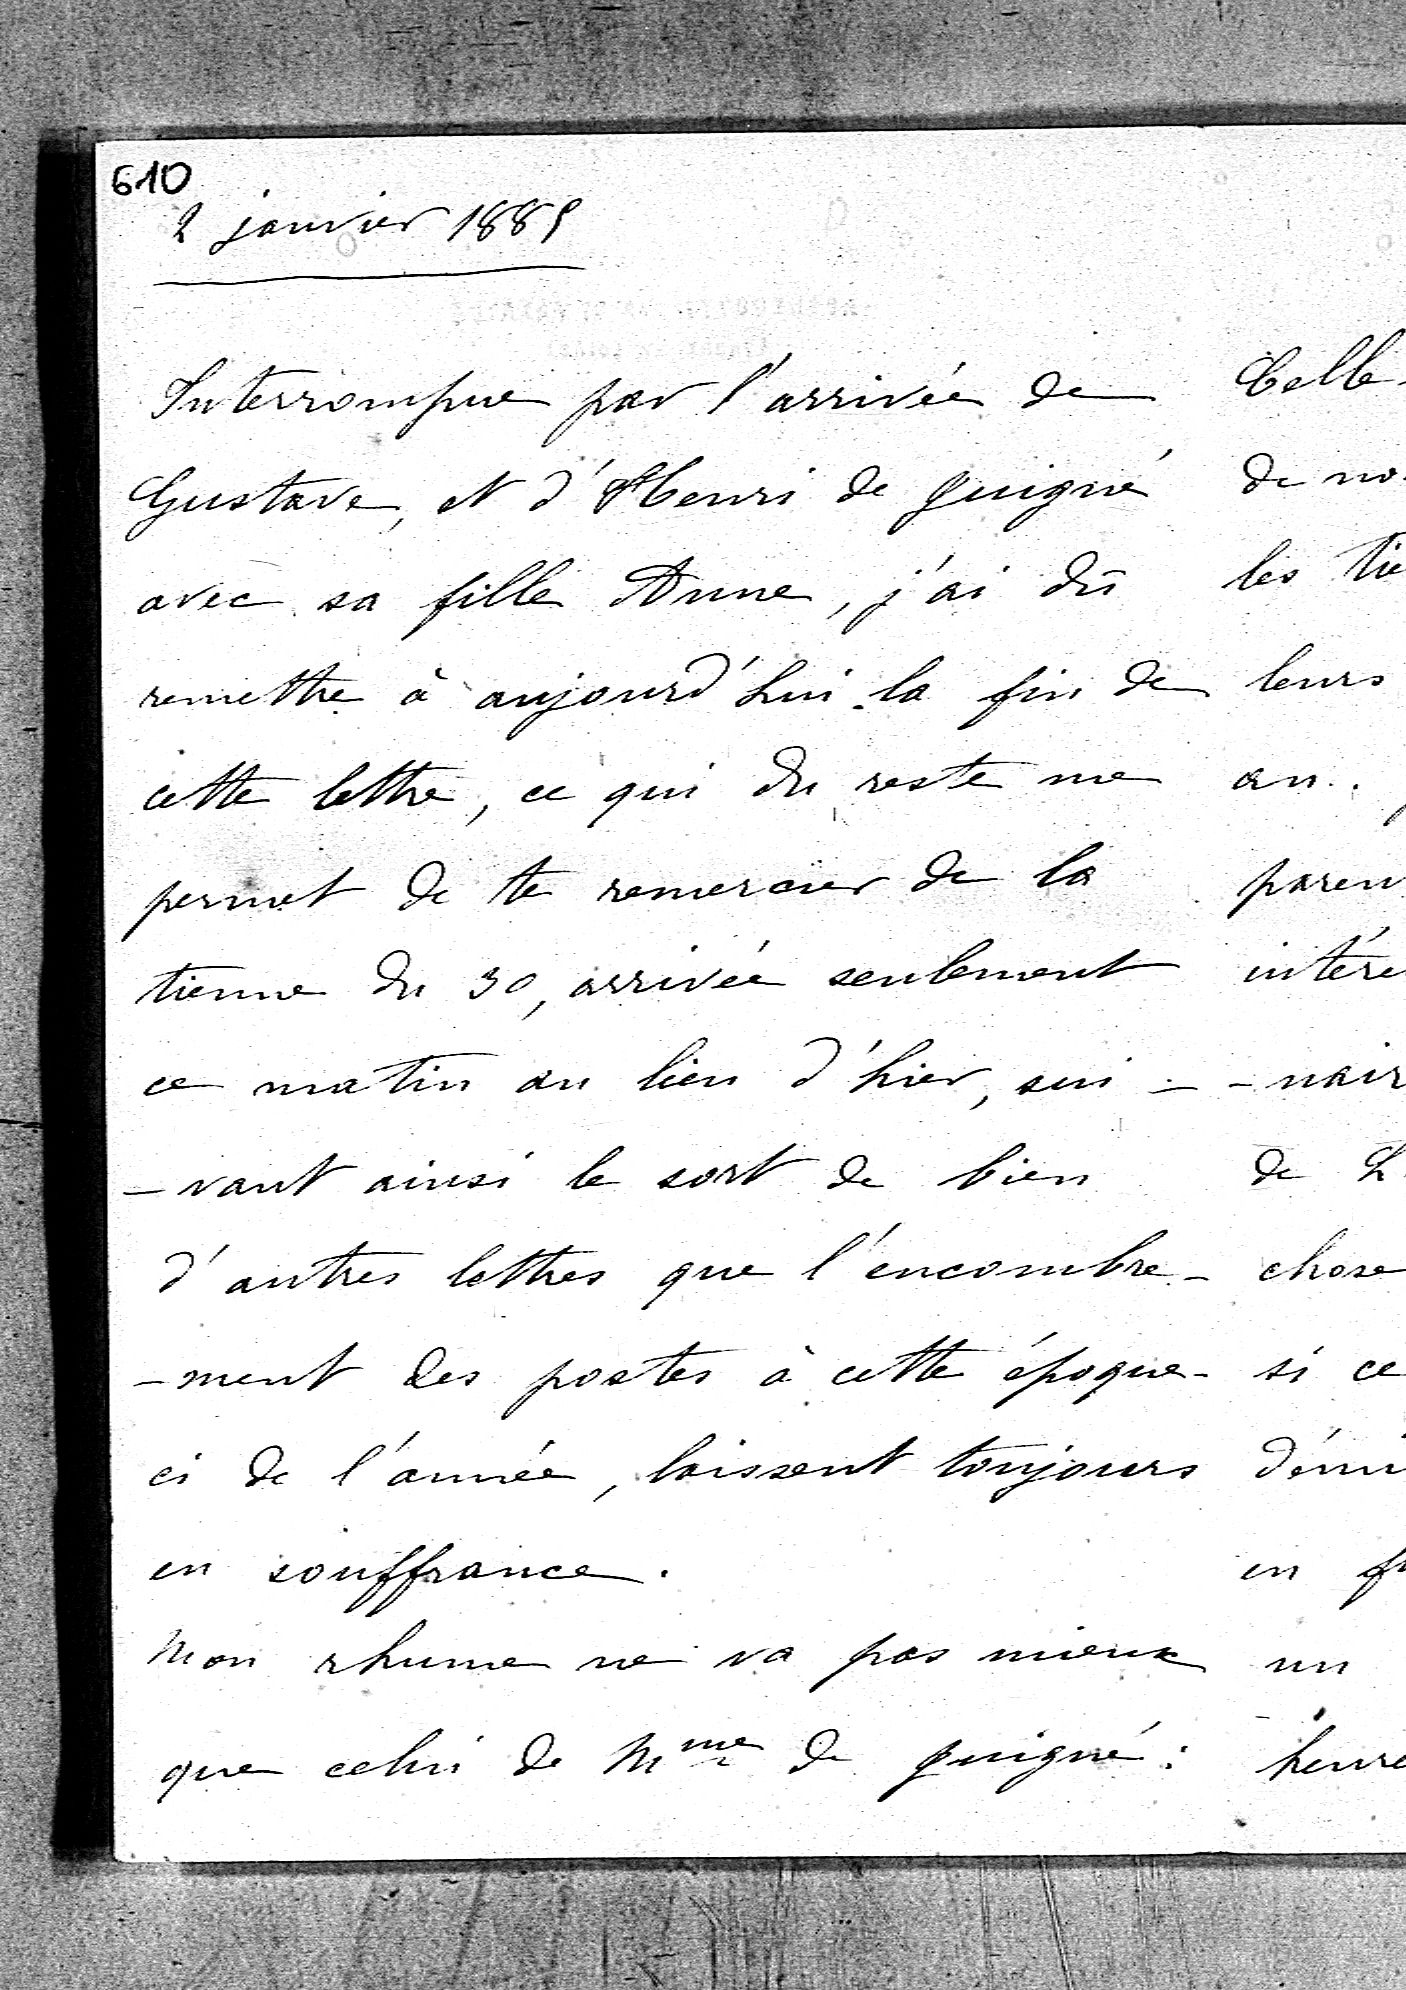 610
2 janvier 1889
Interrompue par l'arrivée de
Gustave, et d'Henri de Guigné
avec sa fille Anne, j'ai dû
remettre à aujourd'hui la fin de
cette lettre, ce qui du reste me
permet de te remercier de la
tienne du 30, arrivée seulement
ce matin au lieu d'hier, sui-
-vant ainsi le sort de bien
d'autres lettres que l'encombre-
-ment des postes à cette époque-
ci de l'année, laissent toujours
en souffrance.
Mon rhume ne va pas mieux
que celui de Mme de Guigné :
Celle
de no
les
leurs
an.
paren
intére
-nair
de
chose
si ce
en
un
heure